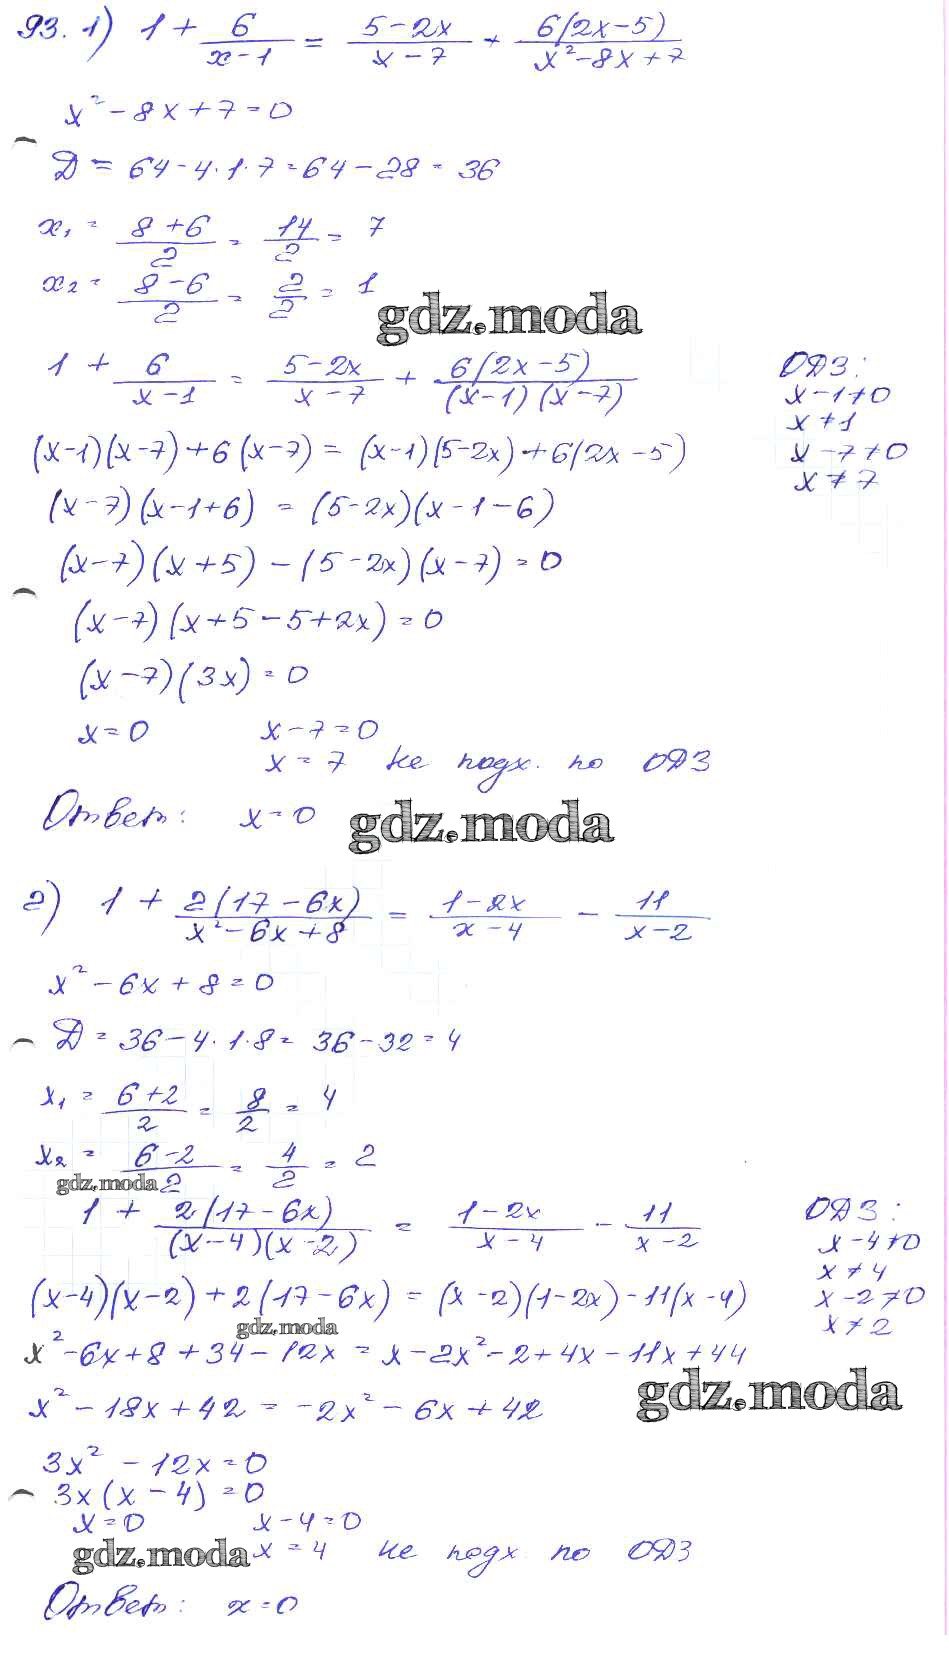 93. 1) 1 + 6/(x-1) = (5-2x)/(x-7) + 6(2x-5)/(x²-8x+7)
x²-8x+7=0
D = 64-4·1·7=64-28=36
x₁ = (8+6)/2 = 14/2 = 7
x₂ = (8-6)/2 = 2/2 = 1
gdz.moda
1 + 6/(x-1) = (5-2x)/(x-7) + 6(2x-5)/((x-1)(x-7)) ОДЗ:
x-1≠0
x≠1
(x-1)(x-7)+6(x-7) = (x-1)(5-2x)+6(2x-5) x-7≠0
x≠7
(x-7)(x-1+6) = (5-2x)(x-1-6)
(x-7)(x+5)-(5-2x)(x-7)=0
(x-7)(x+5-5+2x)=0
(x-7)(3x)=0
x=0 x-7=0
x=7 не подх. по ОДЗ
Ответ: x=0 gdz.moda
2) 1 + 2(17-6x)/(x²-6x+8) = (1-2x)/(x-4) - 11/(x-2)
x²-6x+8=0
D=36-4·1·8=36-32=4
x₁ = (6+2)/2 = 8/2 = 4
x₂ = (6-2)/2 = 4/2 = 2
gdz.moda
1 + 2(17-6x)/((x-4)(x-2)) = (1-2x)/(x-4) - 11/(x-2) ОДЗ:
x-4≠0
x≠4
(x-4)(x-2)+2(17-6x) = (x-2)(1-2x)-11(x-4) x-2≠0
gdz.moda x≠2
x²-6x+8+34-12x=x-2x²-2+4x-11x+44
gdz.moda
x²-18x+42=-2x²-6x+42
3x²-12x=0
3x(x-4)=0
x=0 x-4=0
gdz.moda x=4 не подх по ОДЗ
Ответ: x=0